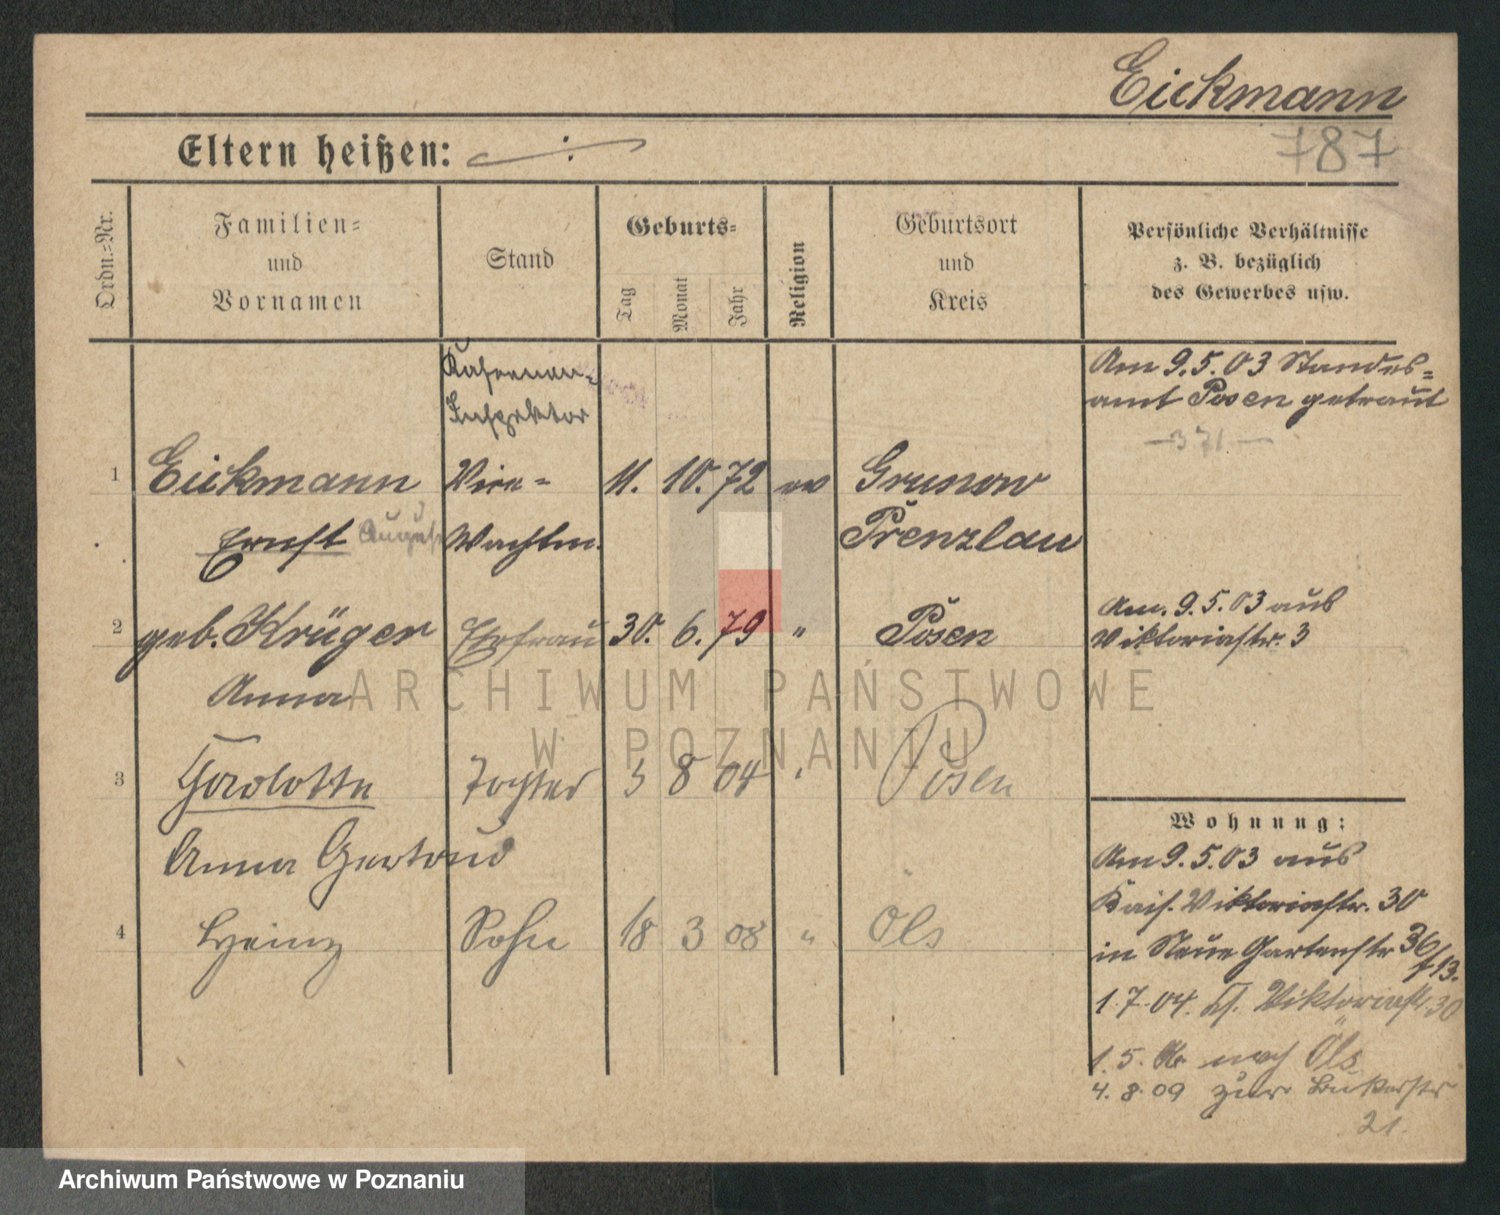 Eickmann
787
Eltern heißen: ∙/∙
Ordn.-Nr.
Familien-
und
Vornamen
Stand
Geburts-
Tag
Monat
Jahr
Religion
Geburtsort
und
Kreis
Persönliche Verhältnisse
z. B. bezüglich
des Gewerbes usw.
Kasernen-
Inspektor
Am 9.5.03 Standes=
amt Posen getraut
— 371 —
1 Eickmann Vice= 11. 10. 72 ev Grunow
Ernst August Wachtm. Prenzlau
2 geb. Krüger Ehefrau 30. 6. 79 " Posen
Anna
Am. 9.5.03 aus
Viktoriastr. 3
3 Charlotte Tochter 5 8 04 " Posen
Anna Gertrud
4 Heinz Sohn 18 3 08 " Öls
Wohnung:
Am 9.5.03 aus
Kais. Viktoriastr. 30
in Neue Gartenstr 36
/13.
1.7.04. Viktoriastr. 30
1.5. 06 nach Öls
4.8.09 zur
21.
ARCHIWUM PAŃSTWOWE
W POZNANIU
Archiwum Państwowe w Poznaniu